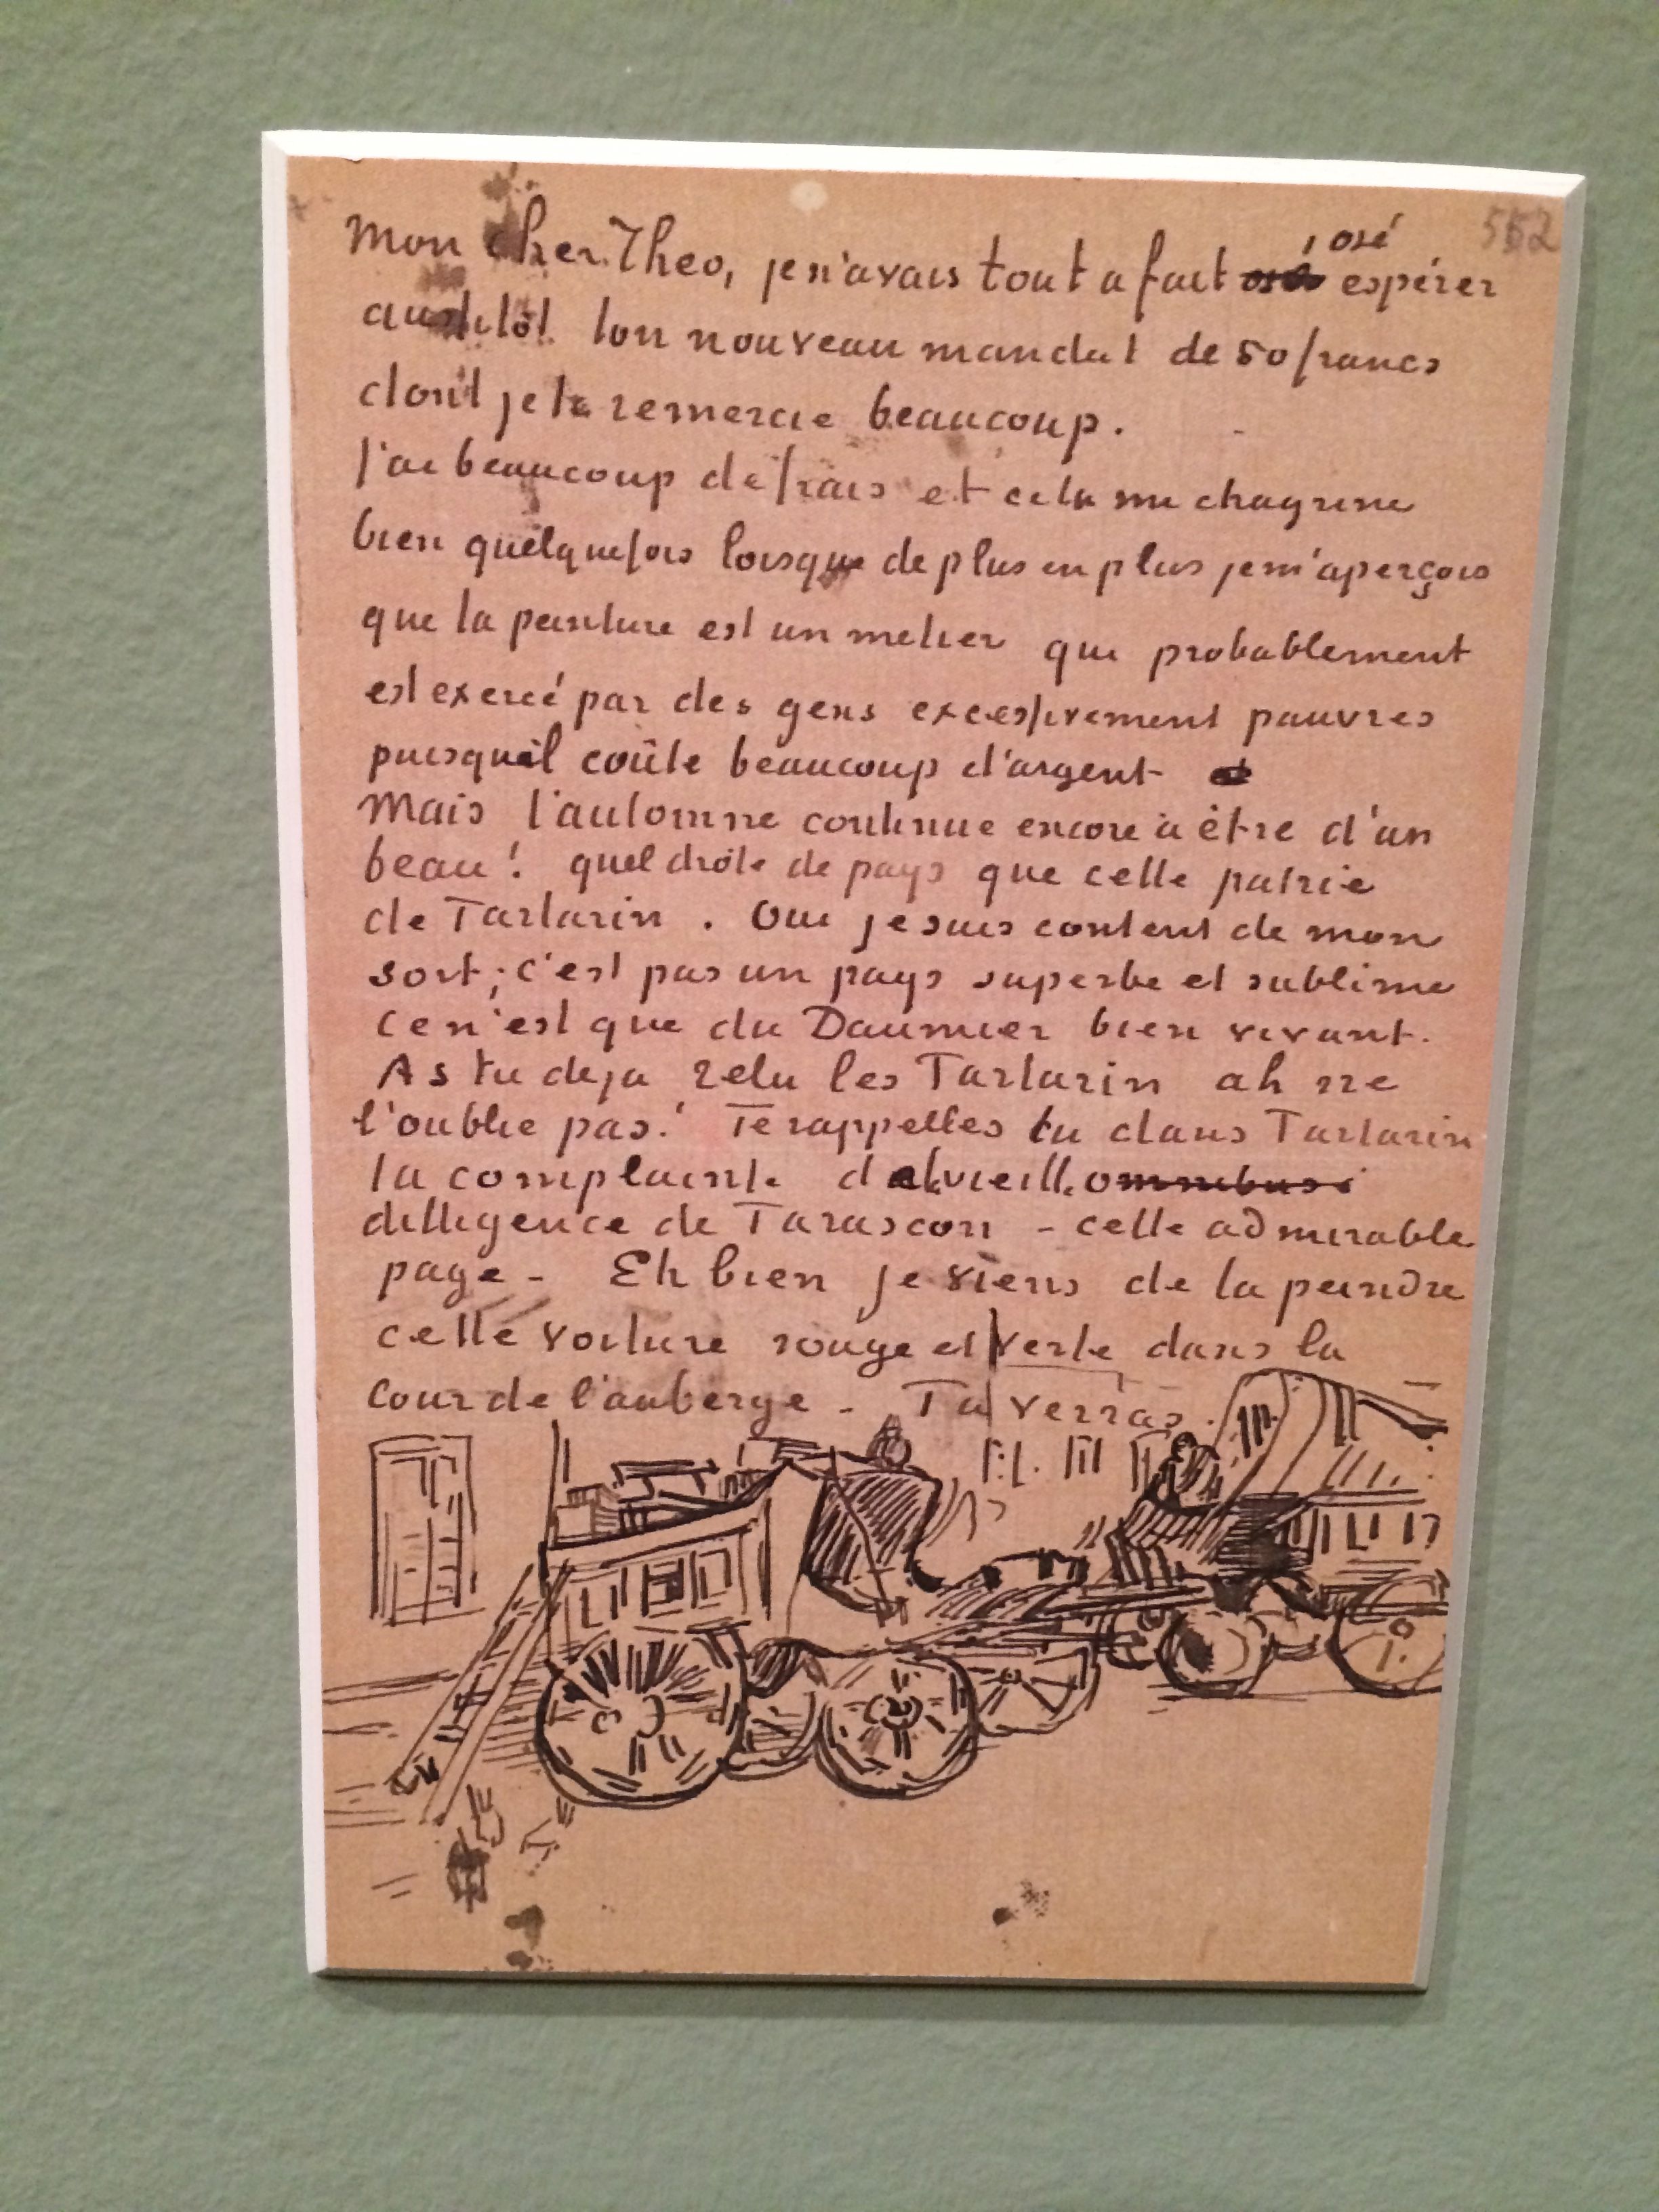 552
osé
mon cher Theo, je n'avais tout a fait osé espérer
aussitôt ton nouveau mandat de 50 francs
dont je te remercie beaucoup.
J'ai beaucoup de frais et cela me chagrine
bien quelquefois lorsque de plus en plus je m'aperçois
que la peinture est un metier qui probablement
est exercé par des gens excessivement pauvres
puisqu'il coûte beaucoup d'argent
Mais l'automne continue encore à être d'un
beau! quel drôle de pays que cette patrie
de Tartarin. Oui je suis content de mon
sort; c'est pas un pays superbe et sublime
ce n'est que du Daumier bien vivant.
As tu deja relu les Tartarin ah ne
l'oublie pas! Te rappelles tu dans Tartarin
la complainte de la vieille omnibus
dilligence de Tarascon - cette admirable
page - Eh bien je viens de la peindre
cette voiture rouge et verte dans la
cour de l'auberge - Tu verras.